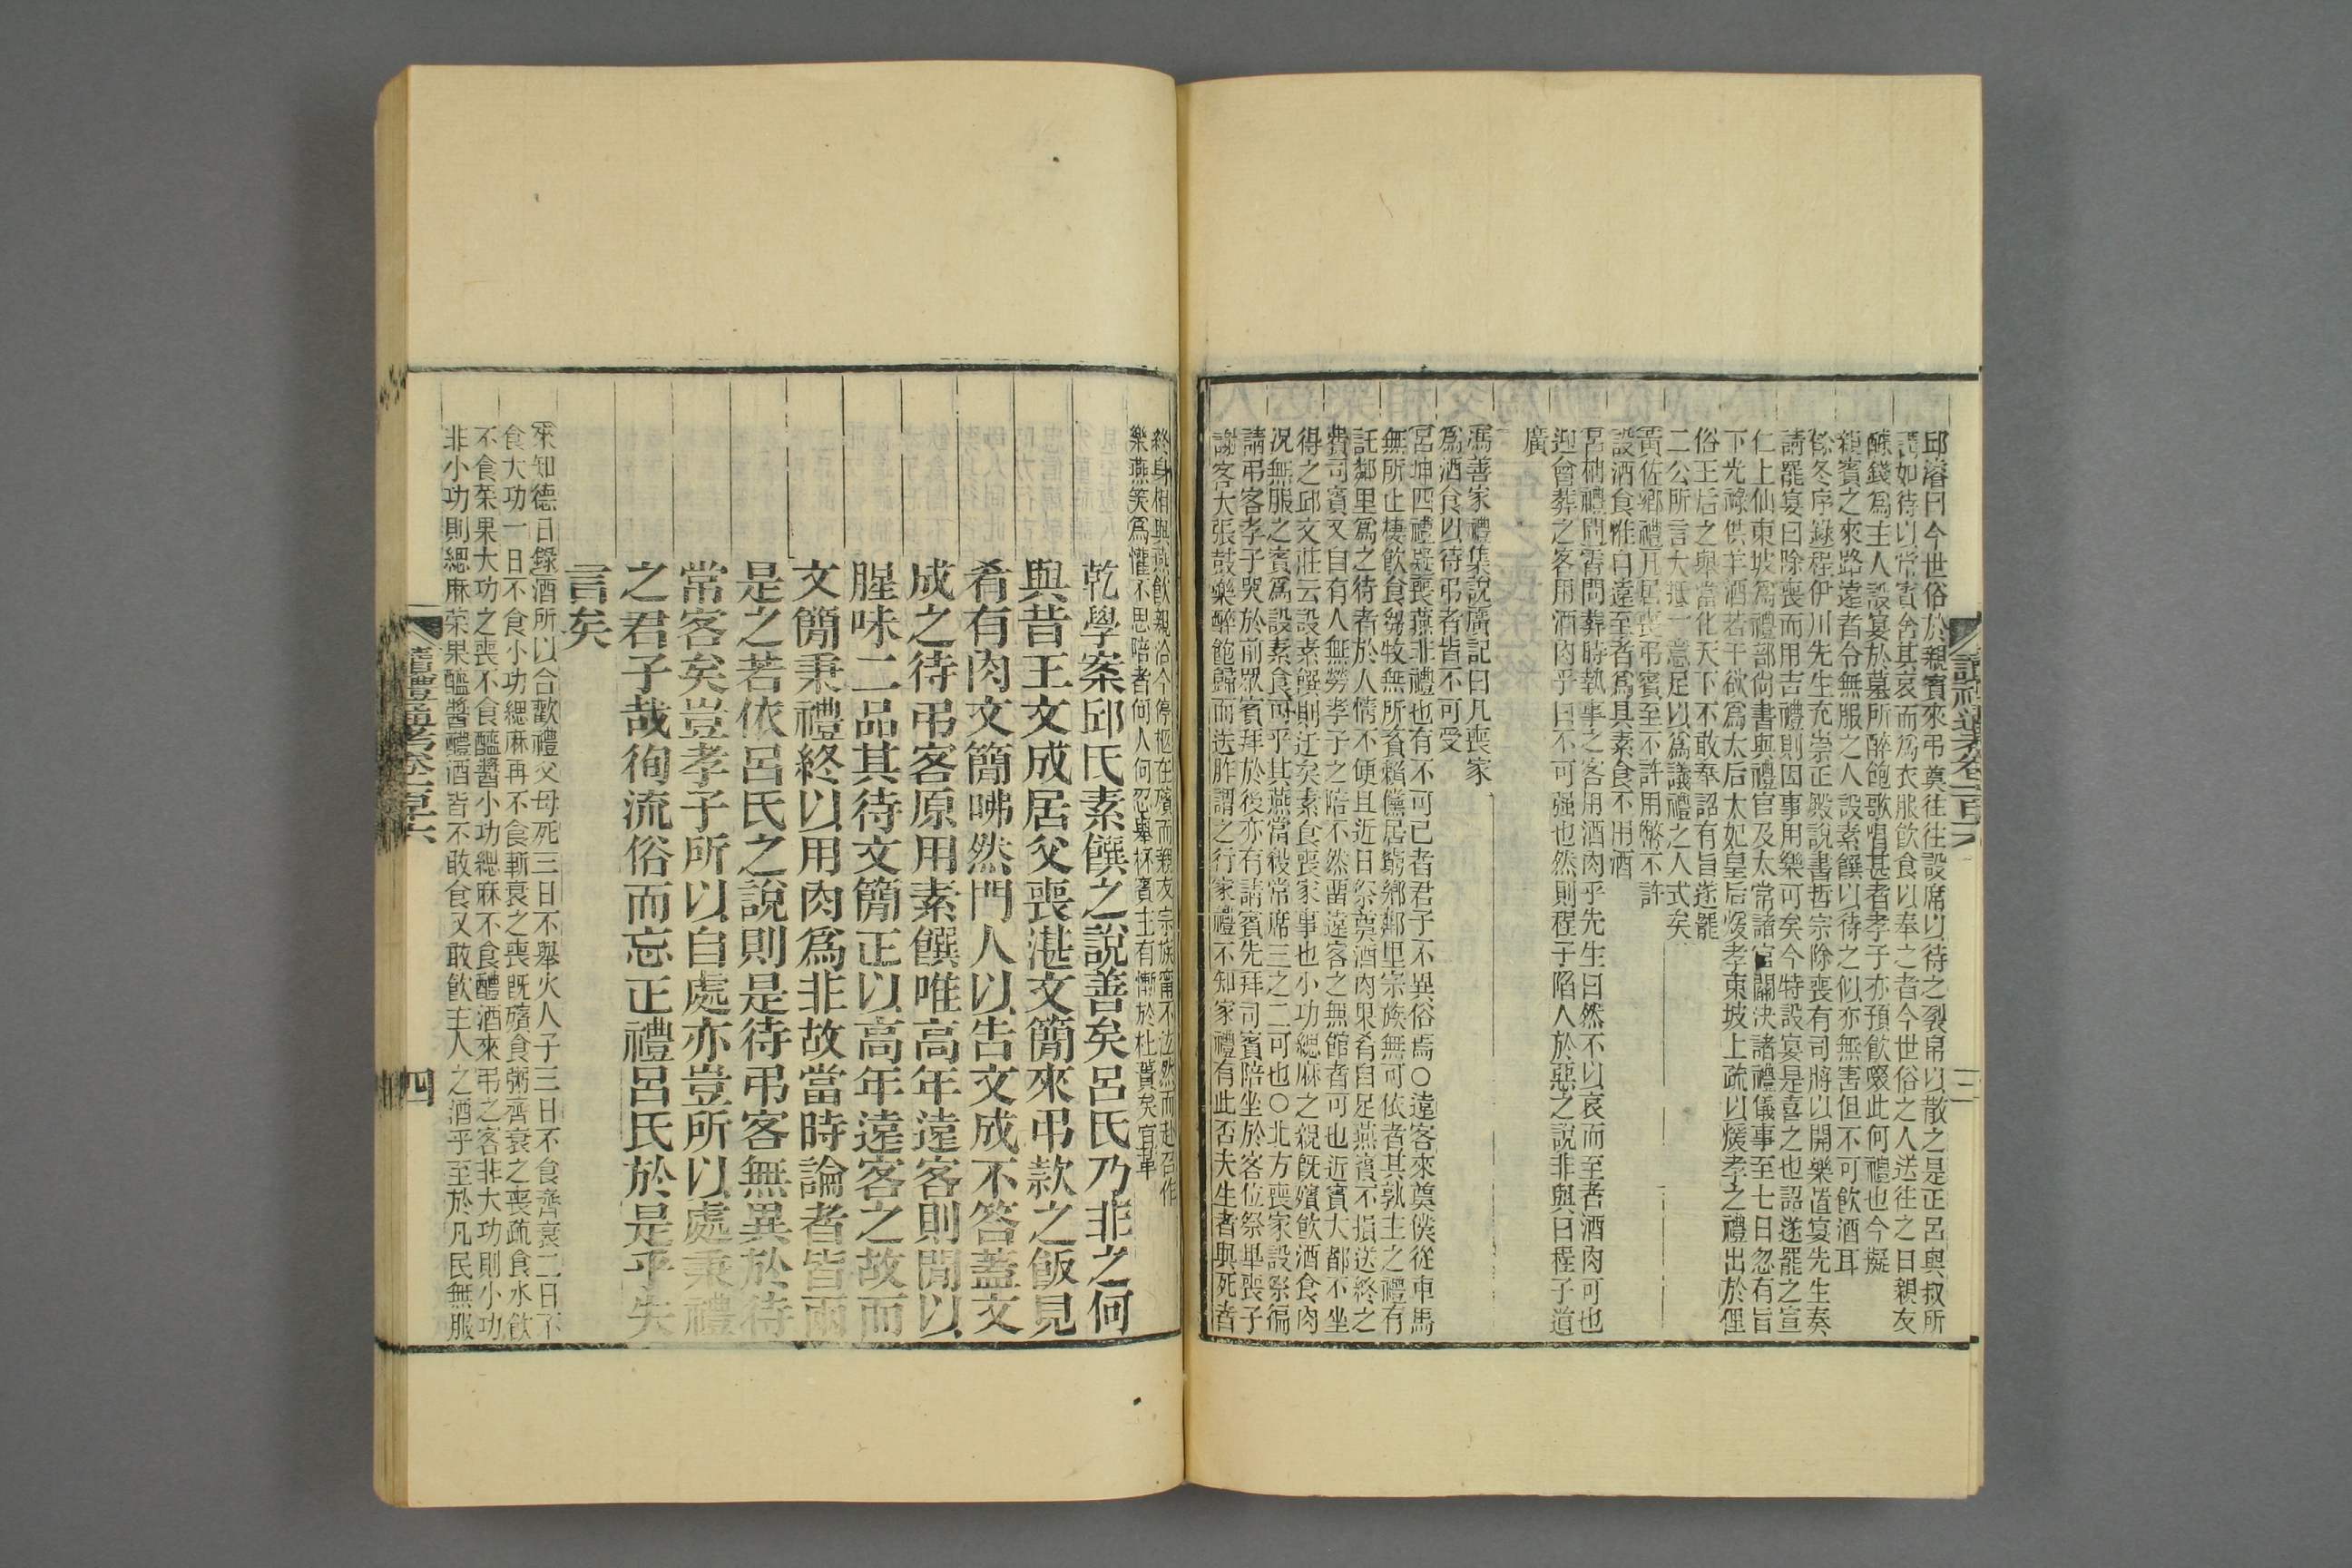 邱濬曰今世俗於親賓來弔奠往往設席以待之裂帛以散之是正呂與叔所
謂如待以常賓舍其哀而爲衣服飲食以奉之者今世俗之人送往之日親友
醵錢爲主人設宴於墓所醉飽歌唱甚者孝子亦預飲啜此何禮也今擬
親賓之來路遠者令無服之人設素饌以待之似亦無害但不可飲酒耳
徐冬序錄程伊川先生充崇正殿說書哲宗除喪有司將以開樂置宴先生奏
請罷宴曰除喪而用吉禮則因事用樂可矣今特設宴是喜之也詔遂罷之宣
仁上仙東坡爲禮部尙書與禮官及太常諸官關決諸禮儀事至七日忽有旨
下光祿供羊酒若干欲爲太后太妃皇后煖孝東坡上疏以煖孝之禮出於俚
俗王后之舉當化天下不敢奉詔有旨遂罷
二公所言大抵一意足以爲議禮之人式矣
黃佐鄉禮凡居喪弔賓至不許用幣不許
設酒食惟自遠至者爲具素食不用酒
呂柟禮問霄問葬時執事之客用酒肉乎先生曰然不以哀而至者酒肉可也
迎會葬之客用酒肉乎曰不可强也然則程子陷人於惡之說非與曰程子道
廣
馮善家禮集說廣記曰凡喪家
爲酒食以待弔者皆不可受
呂坤四禮疑喪燕非禮也有不可已者君子不異俗焉○遠客來奠僕從車馬
無所止棲飲食芻牧無所資賴儻居窮鄉鄰里宗族無可依者其孰主之禮有
託鄰里爲之待者於人情不便且近日祭奠酒肉果肴自足燕賓不損送終之
費司賓又自有人無勞孝子之陪不然畱遠客之無館者可也近賓大都不坐
得之邱文莊云設素饌則迂矣素食喪家事也小功緦麻之親旣殯飲酒食肉
况無服之賓爲設素食可乎其燕當殺常席三之二可也○北方喪家設祭徧
請弔客孝子哭於前眾賓拜於後亦有請賓先拜司賓陪坐於客位祭畢喪子
謝客大張鼓樂醉飽歸而送胙謂之行家禮不知家禮有此否夫生者與死者
終身相與燕飲親洽今停柩在殯而親友宗族甯不泫然而赴召作
樂燕笑爲懽不思陪者何人何忍舉杯賓主有慚於杜蕢矣宜革
乾學案邱氏素饌之說善矣呂氏乃非之何
與昔王文成居父喪湛文簡來弔款之飯見
肴有肉文簡咈然門人以告文成不答蓋文
成之待弔客原用素饌唯高年遠客則閒以
腥味二品其待文簡正以高年遠客之故而
文簡秉禮終以用肉爲非故當時論者皆兩
是之若依呂氏之說則是待弔客無異於待
常客矣豈孝子所以自處亦豈所以處秉禮
之君子哉徇流俗而忘正禮呂氏於是乎失
言矣
來知德日錄酒所以合歡禮父母死三日不舉火人子三日不食齊衰二日不
食大功一日不食小功緦麻再不食斬衰之喪旣殯食粥齊衰之喪疏食水飲
不食菜果大功之喪不食醯醬小功緦麻不食醴酒來弔之客非大功則小功
非小功則緦麻菜果醯醬醴酒皆不敢食又敢飲主人之酒乎至於凡民無服
讀禮通考卷一百六
四